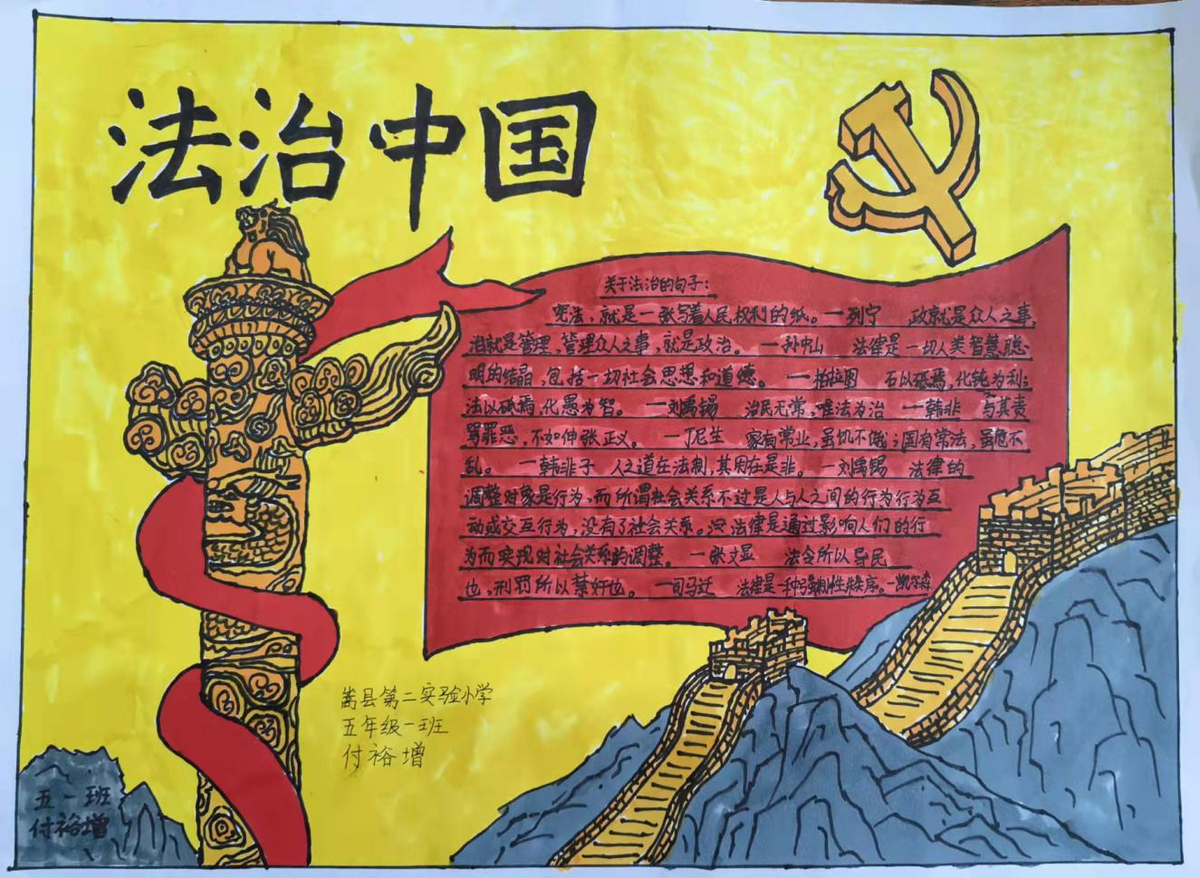 法治中国
关于法治的句子：
宪法，就是一张写着人民权利的纸。—列宁 政就是众人之事，
治就是管理，管理众人之事，就是政治。—孙中山 法律是一切人类智慧聪
明的结晶，包括一切社会思想和道德。—柏拉图 石以砥焉，化钝为利；
法以砥焉，化愚为智。—刘禹锡 治民无常，唯法为治 —韩非 与其责
骂罪恶，不如伸张正义。—丁尼生 家有常业，虽饥不饿；国有常法，虽危不
乱。—韩非子 人之道在法制，其用在是非。—刘禹锡 法律的
调整对象是行为，而所谓社会关系不过是人与人之间的行为行为互
动或交互行为，没有了社会关系。 法律是通过影响人们的行
为而实现对社会关系的调整。—张文显 法令所以导民
也，刑罚所以禁奸也。—司马迁 法律是一种强制性秩序。—凯尔森
嵩县第二实验小学
五年级一班
付裕增
五一班
付裕增